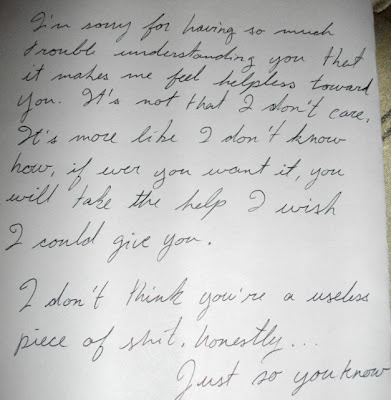 I'm sorry for having so much
trouble understanding you that
it makes me feel helpless toward
you. It's not that I don't care,
It's more like I don't know
how, if ever you want it, you
will take the help I wish
I could give you.
I don't think you're a useless
piece of shit, honestly...
Just so you know